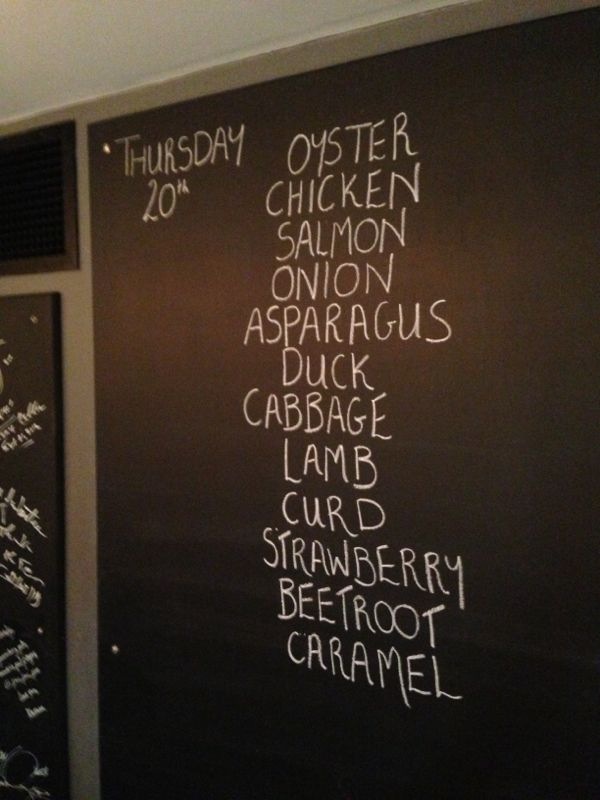 THURSDAY
20th
OYSTER
CHICKEN
SALMON
ONION
ASPARAGUS
DUCK
CABBAGE
LAMB
CURD
STRAWBERRY
BEETROOT
CARAMEL